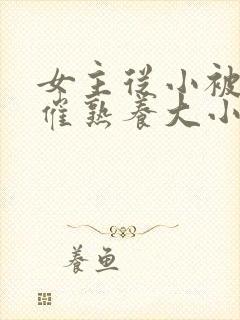 女主从小被
催熟养大小
养鱼